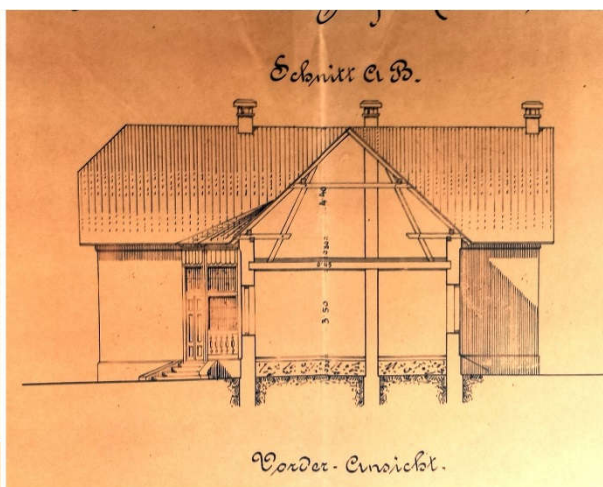 Schnitt A B.
4.40
3.50
Vorder-Ansicht.